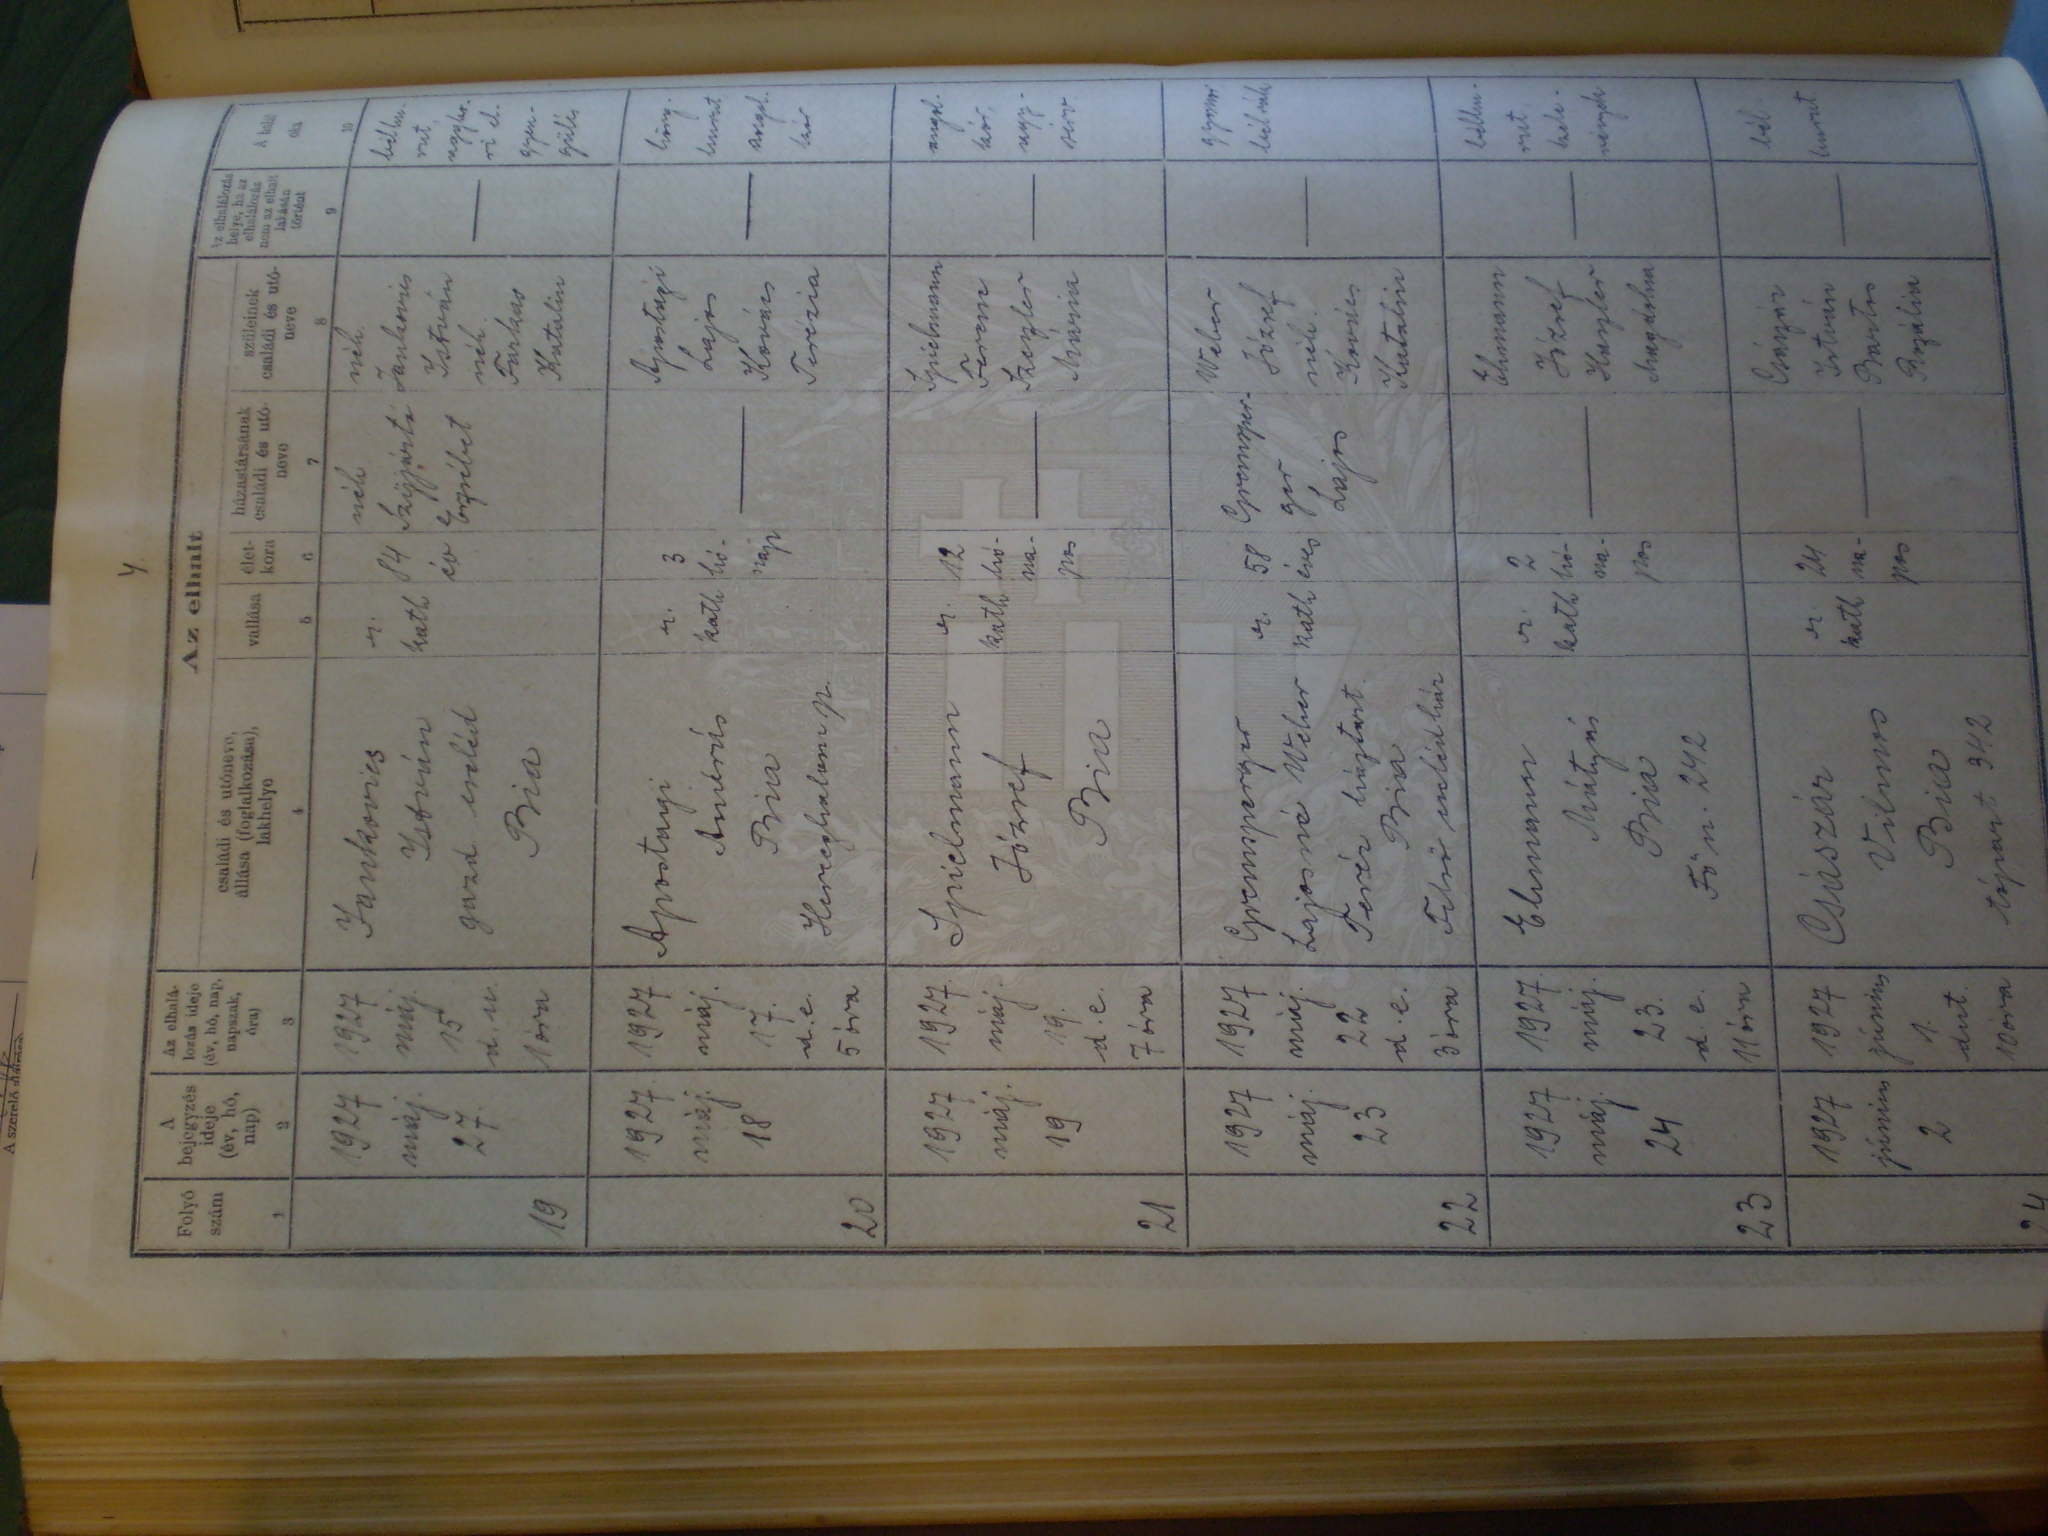 4.
Az elhalt
Folyó
szám
A
bejegyzés
ideje
(év, hó,
nap)
Az elhalá-
lozás ideje
(év, hó, nap,
napszak,
óra)
családi és utóneve,
állása (foglalkozása),
lakhelye
vallása
élet-
kora
házastársának
családi és utó-
neve
szüleinek
családi és utó-
neve
Az elhalálozás
helye, ha az
elhalálozás
nem az elhalt
lakásán
történt
A halál
oka
1
2
3
4
5
6
7
8
9
10
19
1927
máj.
27.
1927
máj.
15
d. u.
1 óra
Jankovics
István
gazd. cseléd
Bia
r.
kath
84
év
néh
Szíjjártó
Erzsébet
néh.
Jankovics
István
néh.
Farkas
Katalin
20
1927.
máj.
18
1927
máj.
17.
d. e.
5 óra
Apostagi
András
Bia
Herceghalom p.
r.
kath
3
hó-
napi
Apostagi
Lajos
Kovács
Terézia
21
1927
máj.
19
1927.
máj.
19.
d. e.
7 óra
Spielmann
József
Bia
r.
kath
12
hó-
na-
pos
Spielmann
Ferenc
Mária
22
1927
máj.
23
1927
máj.
22
d. e.
3 óra
Gremsperger
Lajosné Weber
Teréz háztart.
Bia
Felső cselédház
r.
kath
58
éves
Gremsper-
ger
Lajos
Weber
József
néh.
Kovács
Katalin
gyomor
23
1927
máj.
24
1927.
máj.
23.
d. e.
11 óra
Ehmann
Mátyás
Bia
Fő u. 242
r.
kath
2
hó-
na-
pos
Ehmann
József
Magdolna
24
1927
június
2
1927
június
1.
dut.
10 óra
Császár
Vilmos
Bia
342
r
kath
24
na-
pos
Császár
István
Bartos
Rozália
bél.
hurut.
A szerelő